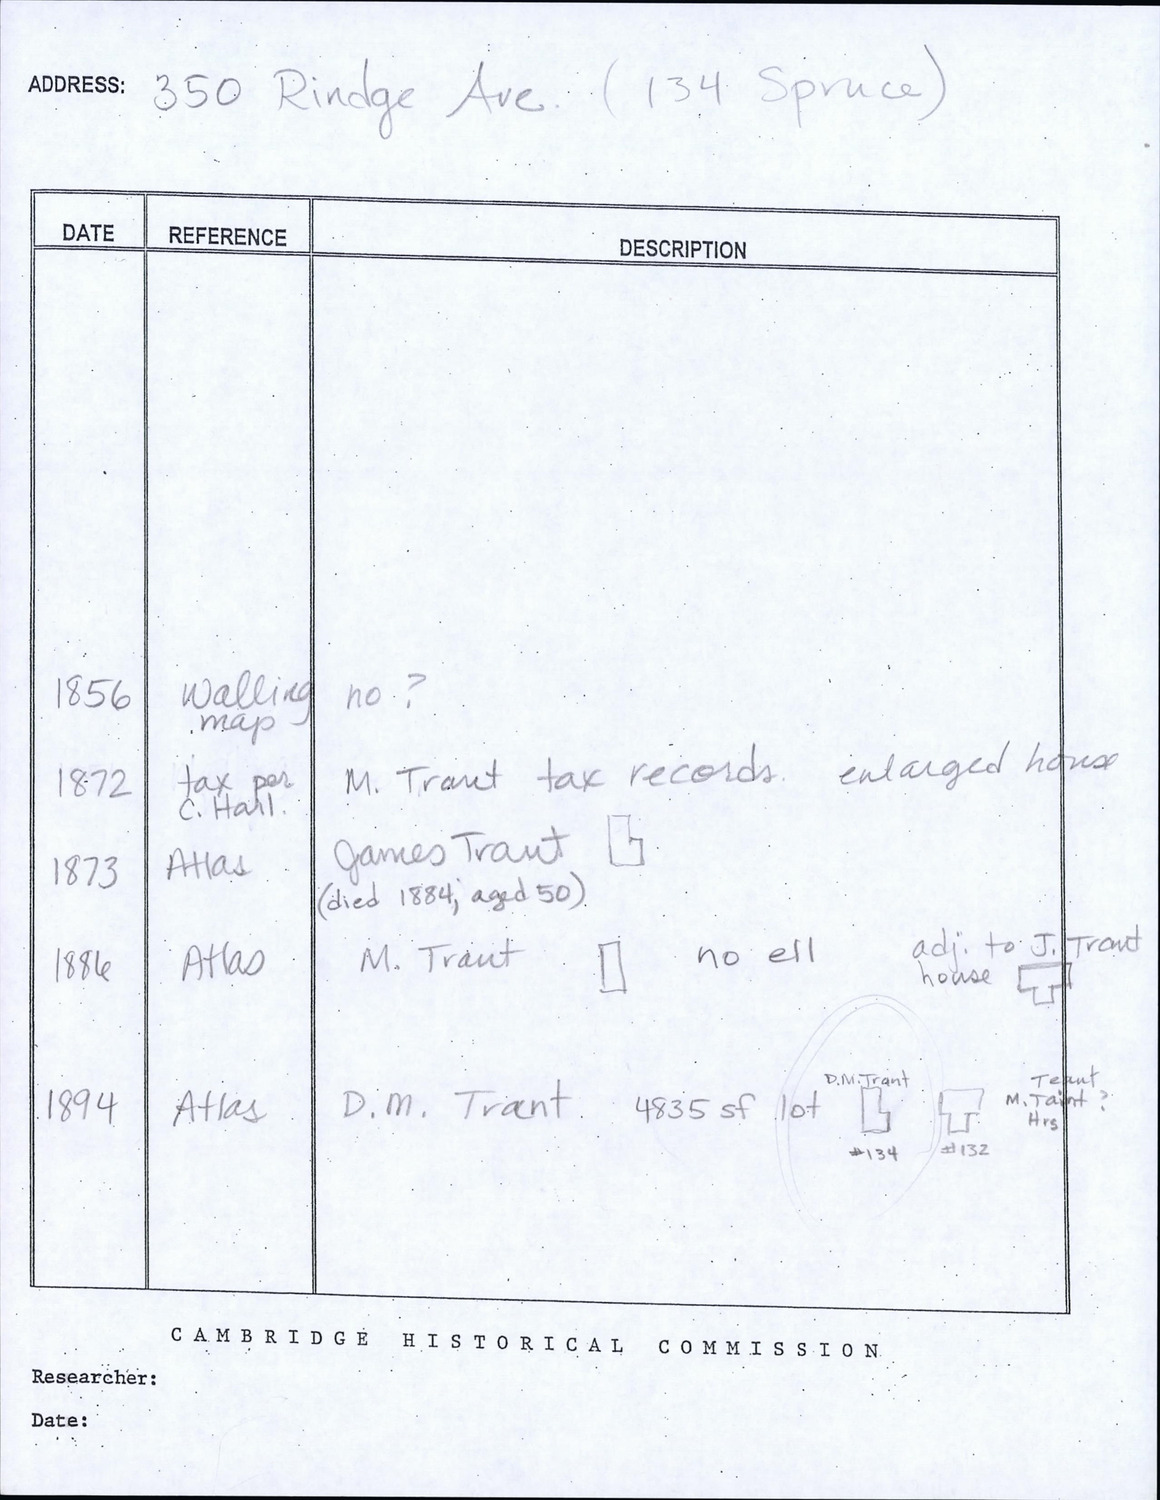 ADDRESS: 350 Rindge Ave. (134 Spruce)
DATE REFERENCE DESCRIPTION
1856 Walling map no ?
1872 tax per C. Hail. M. Trant tax records. enlarged house
1873 Atlas James Trant
(died 1884, aged 50)
1886 Atlas M. Trant no ell adj. to J. Trant
house
1894 Atlas D.M. Trant 4835 sf lot
D.M. Trant
#134
#132
M. Taint ?
Hrs
CAMBRIDGE HISTORICAL COMMISSION
Researcher:
Date: